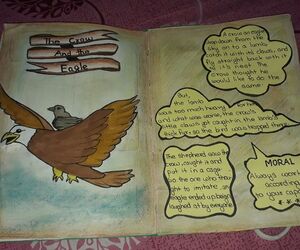 The Crow
And the
Eagle
A crow an eagle
swoop down from the
sky on to a lamb,
catch it with and
fly straight back with it
to it's nest. The
crow thought he
would like to do the
same!
But,
the lamb
was too much heavy for him
and what was worse, the crow's
little claws got caught in the lamb's
thick fur, so the bird was trapped there.
The shepherd saw the
crow, caught it and
put it in a cage
so the one who thought
to imitate an
eagle, ended up being
laughed at by everyone
MORAL
Always work
according
to your